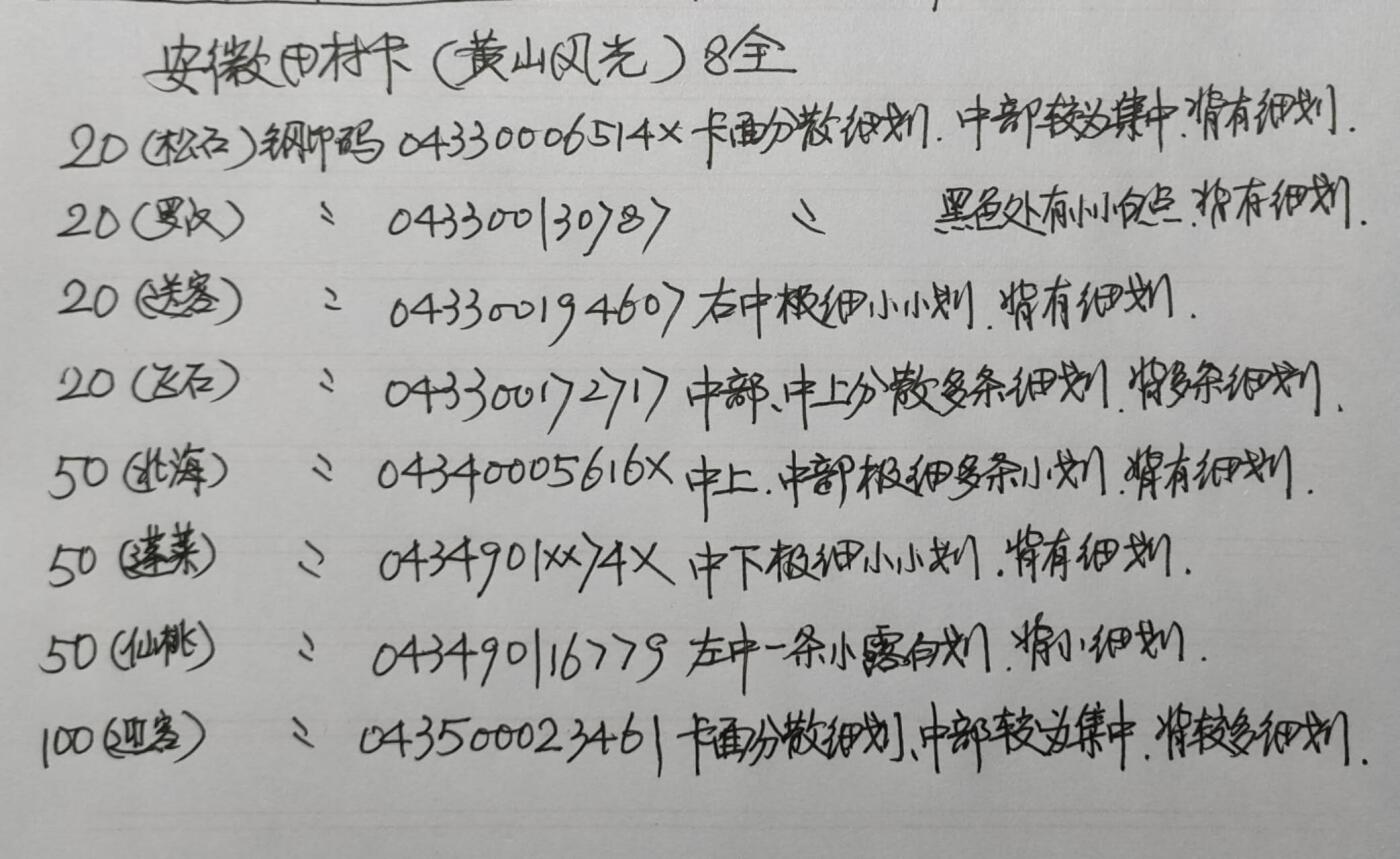 安徽田村卡（黄山风光）8全
20（松石）钢印码 04330006514X 卡面分散细划．中部较为集中．背有细划．
20（罗汉） 〃 043300130787 〃 黑色处有小小白点．背有细划．
20（送客） 〃 043300194607 右中极细小小划．背有细划．
20（飞石） 〃 043300172717 中部、中上分散多条细划．背多条细划．
50（北海） 〃 04340005616X 中上．中部极细多条小划．背有细划．
50（蓬莱） 〃 0434901XX74X 中下极细小小划．背有细划．
50（仙桃） 〃 043490116779 左中一条小露白划．背小细划．
100（迎客） 〃 043500023461 卡面分散细划、中部较为集中．背较多细划．